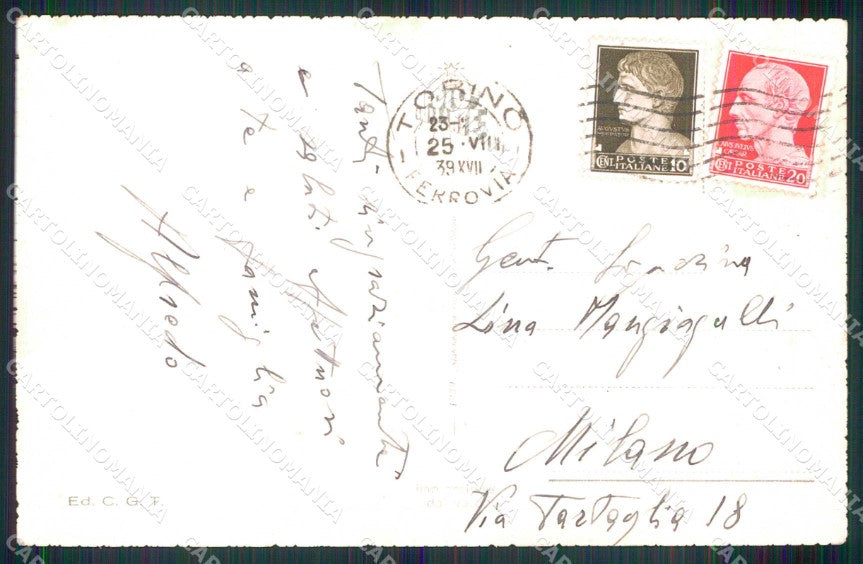 Tanti ringraziamenti
e saluti
a te e famiglia
Alfredo
TORINO
23-
25 · VIII
39 XVII
FERROVIA
AUGUSTUS
POSTE
CENT. ITALIANE 10
CAESAR
POSTE
CENT. ITALIANE 20
Gent. Signorina
Lina Mangiagalli
Milano
Via Tartaglia 18
Ed. C. G. T.
CARTOLINOMANIA